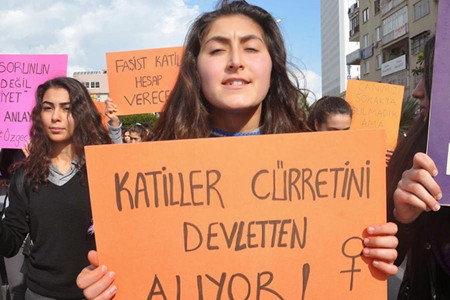 SORUNUN
DEĞİL
ANLAY
#Özgec
FAŞİST KATİL
HESAP
VERECE
KATİLLER CÜRRETİNİ
DEVLETTEN
ALIYOR!